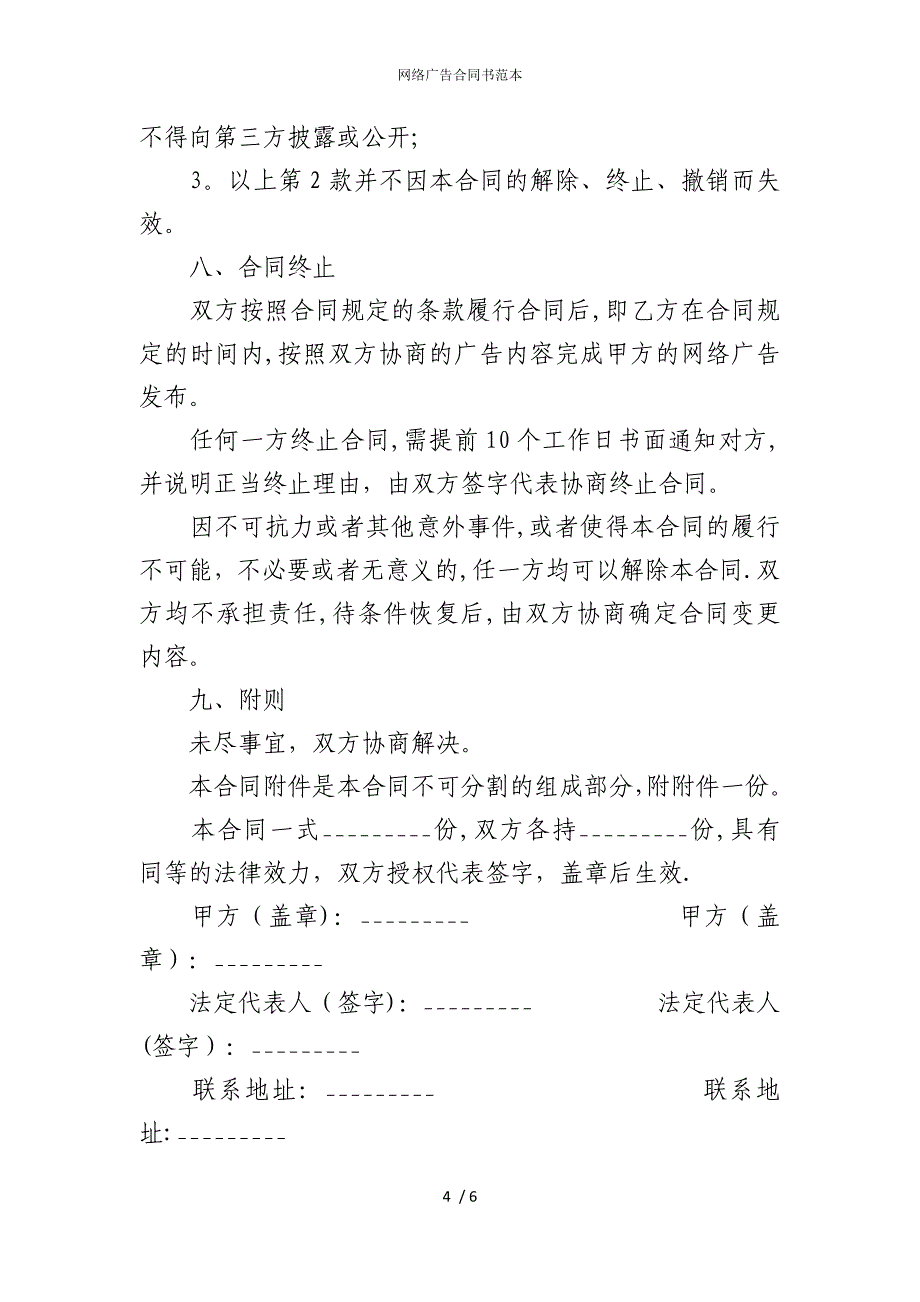 网络广告合同书范本
不得向第三方披露或公开;
3。以上第2款并不因本合同的解除、终止、撤销而失
效。
八、合同终止
双方按照合同规定的条款履行合同后,即乙方在合同规
定的时间内,按照双方协商的广告内容完成甲方的网络广告
发布。
任何一方终止合同,需提前10个工作日书面通知对方,
并说明正当终止理由，由双方签字代表协商终止合同。
因不可抗力或者其他意外事件,或者使得本合同的履行
不可能，不必要或者无意义的,任一方均可以解除本合同.双
方均不承担责任,待条件恢复后,由双方协商确定合同变更
内容。
九、附则
未尽事宜，双方协商解决。
本合同附件是本合同不可分割的组成部分,附附件一份。
本合同一式_________份,双方各持_________份,具有
同等的法律效力，双方授权代表签字，盖章后生效.
甲方（盖章)：_________ 甲方（盖
章）：_________
法定代表人（签字)：_________ 法定代表人
(签字）：_________
联系地址：_________ 联系地
址:_________
4 / 6